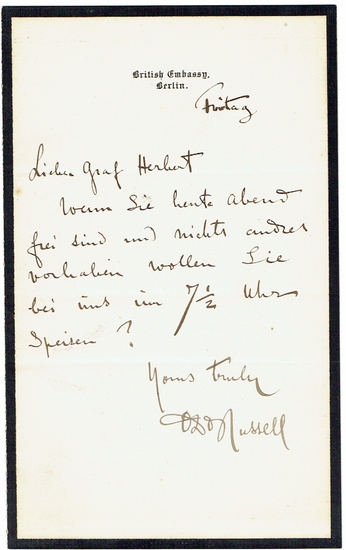 British Embassy,
Berlin.
Freitag
Lieber Graf Herbert
Wenn Sie heute Abend
frei sind und nichts andres
vorhaben wollen Sie
bei uns um 7½ Uhr
Speisen ?
Yours truly
Russell